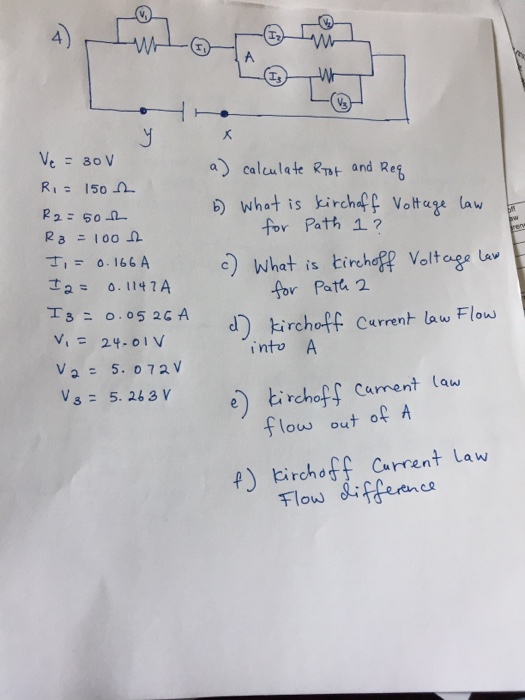 4)
V₁
I₁
A
I₂
V₂
I₃
V₃
y
x
Vt = 30 V
R1 = 150 Ω
R2 = 50 Ω
R3 = 100 Ω
I1 = 0.166 A
I2 = 0.1147 A
I3 = 0.0526 A
V1 = 24.01 V
V2 = 5.072 V
V3 = 5.263 V
a) calculate RTot and Req
b) What is kirchoff Voltage law
for Path 1?
c) What is kirchoff Voltage Law
for Path 2
d) kirchoff Current law Flow
into A
e) kirchoff Current law
flow out of A
f) kirchoff Current Law
Flow difference